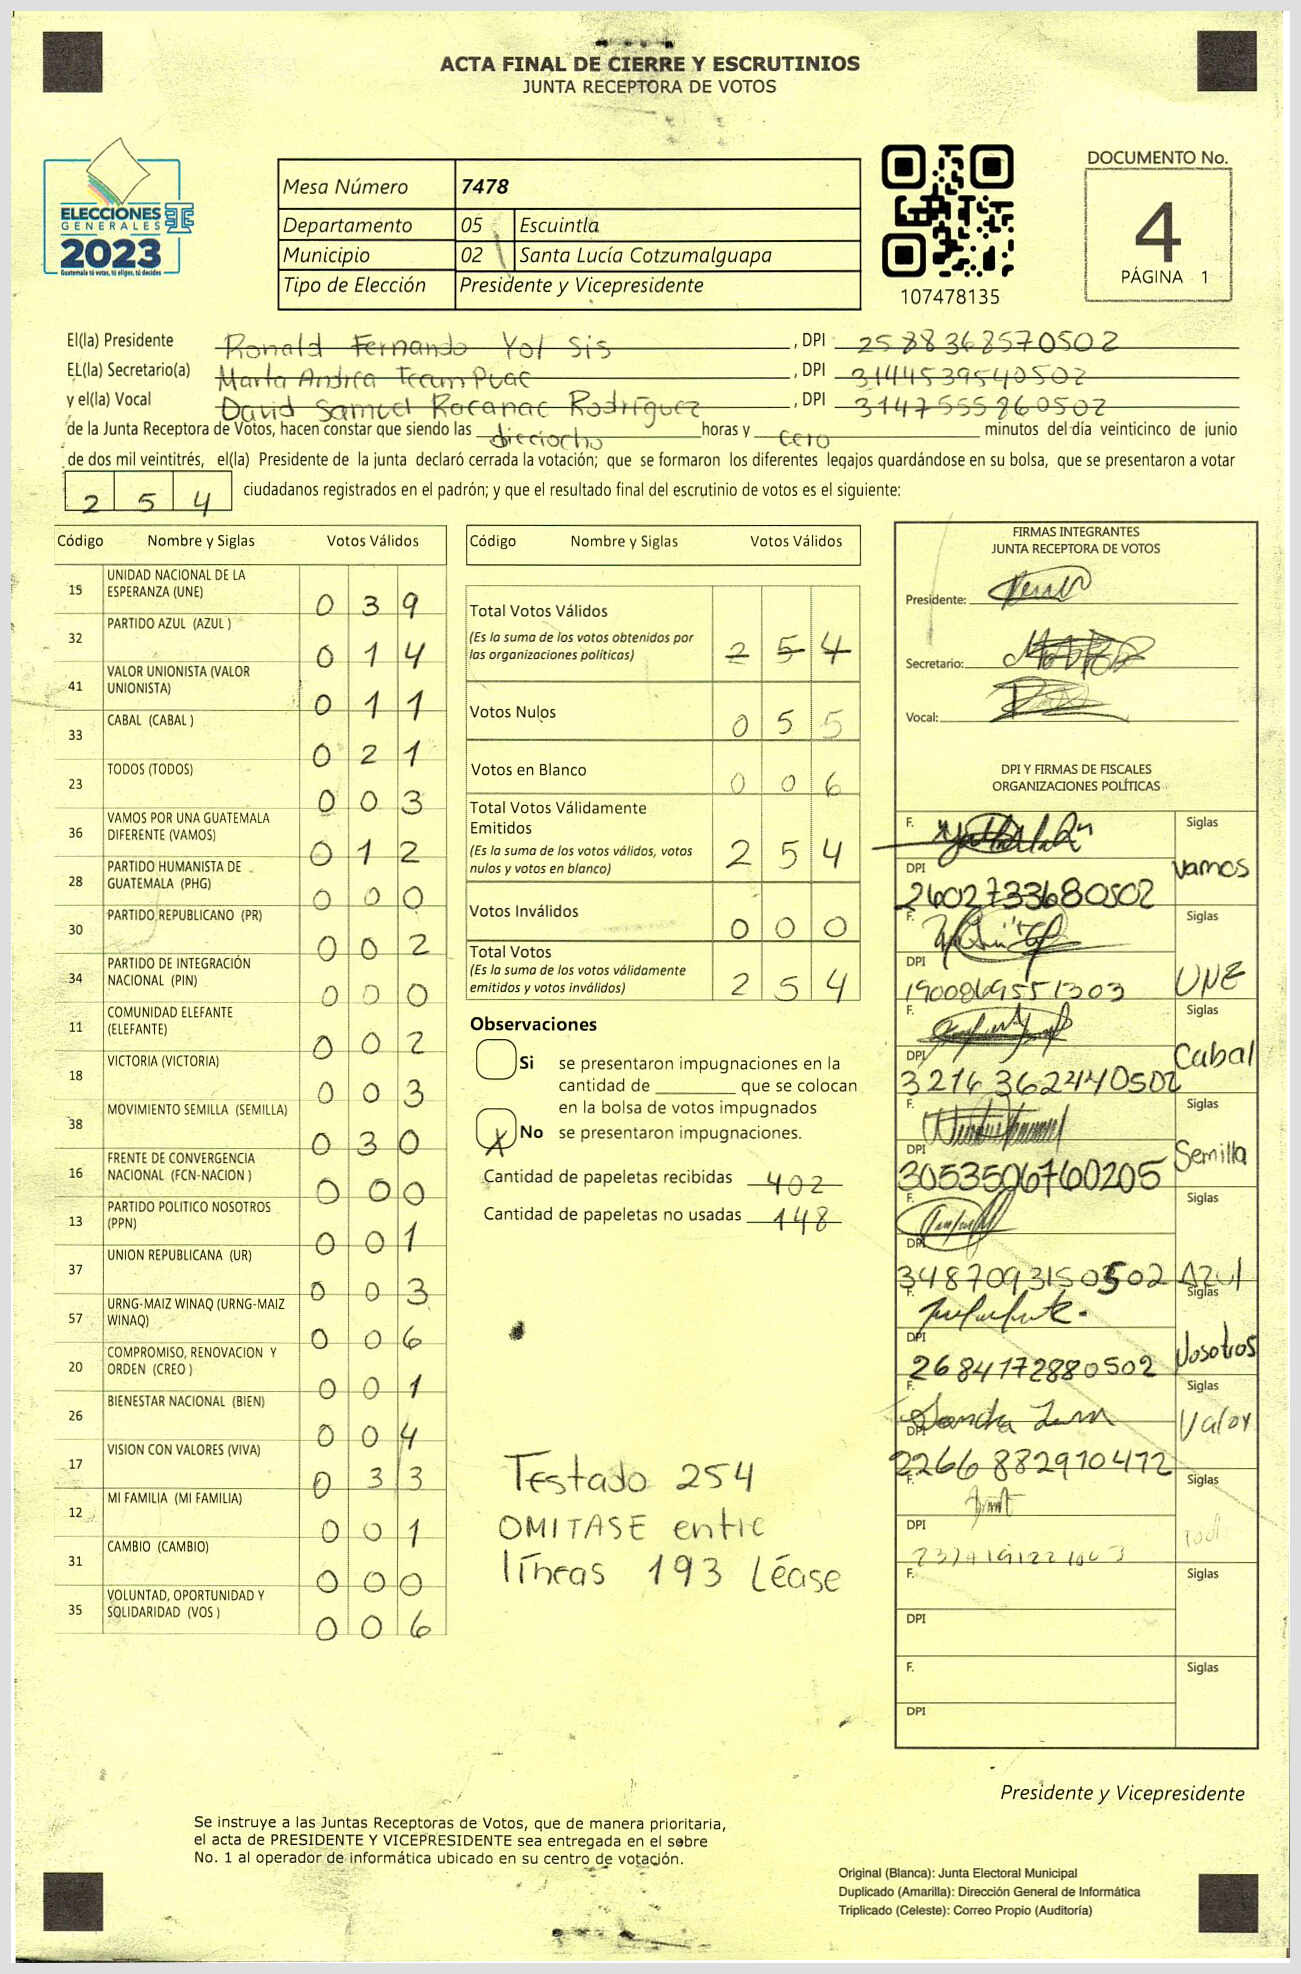 ACTA FINAL DE CIERRE Y ESCRUTINIOS
JUNTA RECEPTORA DE VOTOS
ELECCIONES
GENERALES
2023
Guatemala tú votas, tú eliges, tú decides
Mesa Número 7478
Departamento 05 Escuintla
Municipio 02 Santa Lucía Cotzumalguapa
Tipo de Elección Presidente y Vicepresidente
107478135
DOCUMENTO No.
4
PÁGINA 1
El(la) Presidente Ronald Fernando Yol Sis, DPI 2588368570502
EL(la) Secretario(a) Marta Andrea Tecum Puac, DPI 3144539540502
y el(la) Vocal David Samuel Rocanac Rodríguez, DPI 3147555860502
de la Junta Receptora de Votos, hacen constar que siendo las dieciocho horas y cero minutos del día veinticinco de junio
de dos mil veintitrés, el(la) Presidente de la junta declaró cerrada la votación; que se formaron los diferentes legajos quardándose en su bolsa, que se presentaron a votar
254 ciudadanos registrados en el padrón; y que el resultado final del escrutinio de votos es el siguiente:
Código Nombre y Siglas Votos Válidos
15 UNIDAD NACIONAL DE LA
ESPERANZA (UNE) 039
32 PARTIDO AZUL (AZUL ) 014
41 VALOR UNIONISTA (VALOR
UNIONISTA) 011
33 CABAL (CABAL ) 021
23 TODOS (TODOS) 003
36 VAMOS POR UNA GUATEMALA
DIFERENTE (VAMOS) 012
28 PARTIDO HUMANISTA DE
GUATEMALA (PHG) 000
30 PARTIDO REPUBLICANO (PR) 002
34 PARTIDO DE INTEGRACIÓN
NACIONAL (PIN) 000
11 COMUNIDAD ELEFANTE
(ELEFANTE) 002
18 VICTORIA (VICTORIA) 003
38 MOVIMIENTO SEMILLA (SEMILLA) 030
16 FRENTE DE CONVERGENCIA
NACIONAL (FCN-NACION ) 000
13 PARTIDO POLITICO NOSOTROS
(PPN) 001
37 UNION REPUBLICANA (UR) 003
57 URNG-MAIZ WINAQ (URNG-MAIZ
WINAQ) 006
20 COMPROMISO, RENOVACION Y
ORDEN (CREO ) 001
26 BIENESTAR NACIONAL (BIEN) 004
17 VISION CON VALORES (VIVA) 033
12 MI FAMILIA (MI FAMILIA) 001
31 CAMBIO (CAMBIO) 000
35 VOLUNTAD, OPORTUNIDAD Y
SOLIDARIDAD (VOS ) 006
Código Nombre y Siglas Votos Válidos
Total Votos Válidos
(Es la suma de los votos obtenidos por
las organizaciones políticas) 254
Votos Nulos 055
Votos en Blanco 006
Total Votos Válidamente
Emitidos
(Es la suma de los votos válidos, votos
nulos y votos en blanco) 254
Votos Inválidos 000
Total Votos
(Es la suma de los votos válidamente
emitidos y votos inválidos) 254
Observaciones
Si se presentaron impugnaciones en la
cantidad de ________ que se colocan
en la bolsa de votos impugnados
X No se presentaron impugnaciones.
Cantidad de papeletas recibidas 402
Cantidad de papeletas no usadas 148
Testado 254
OMITASE entre
líneas 193 Léase
FIRMAS INTEGRANTES
JUNTA RECEPTORA DE VOTOS
Presidente:
Secretario:
Vocal:
DPI Y FIRMAS DE FISCALES
ORGANIZACIONES POLÍTICAS
F. Siglas
DPI Vamos
2602733680502
F. Siglas
DPI UNE
1900869551303
F. Siglas
DPI Cabal
3216362440502
F. Siglas
DPI Semilla
3053506760205
F. Siglas
DPI
3487093150502 Azul
F. Siglas
DPI Nosotros
2684172880502
F. Siglas
DPI Valor
2266882910412
F. Siglas
DPI
F. Siglas
DPI
F. Siglas
DPI
Presidente y Vicepresidente
Se instruye a las Juntas Receptoras de Votos, que de manera prioritaria,
el acta de PRESIDENTE Y VICEPRESIDENTE sea entregada en el sobre
No. 1 al operador de informática ubicado en su centro de votación.
Original (Blanca): Junta Electoral Municipal
Duplicado (Amarilla): Dirección General de Informática
Triplicado (Celeste): Correo Propio (Auditoría)